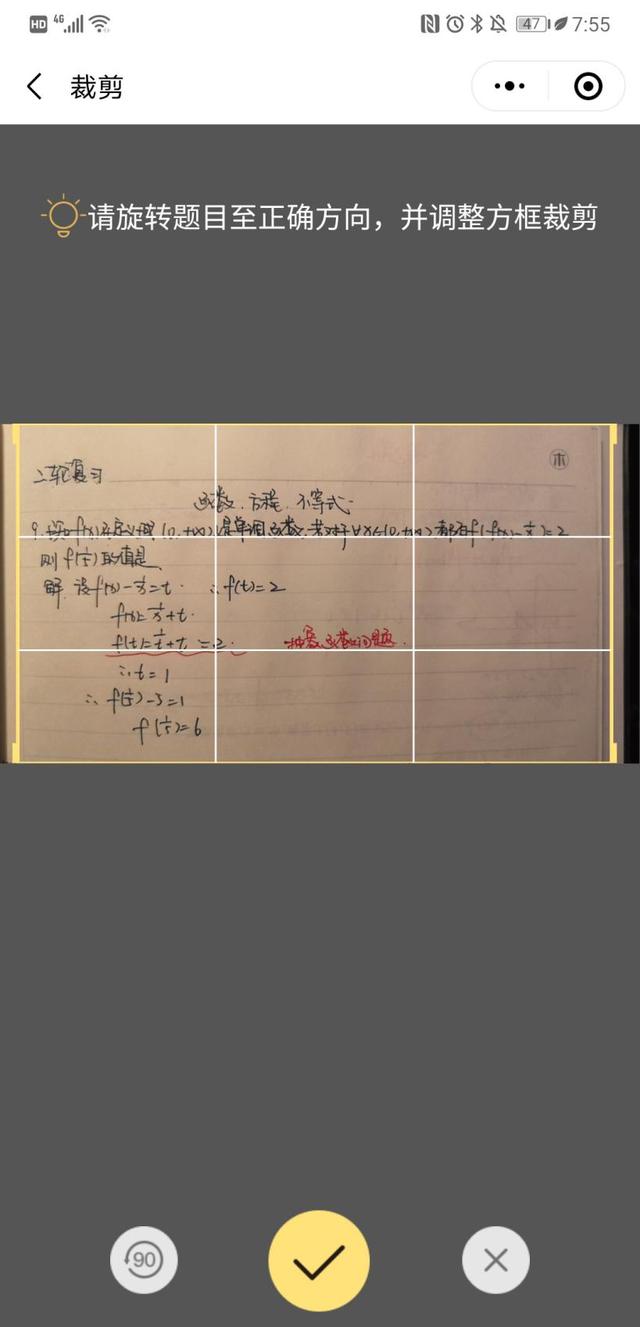 HD 4G 47 7:55
裁剪
请旋转题目至正确方向，并调整方框裁剪
木
二轮复习
函数、方程、不等式
9. 设f(x)在定义域(0,+∞)是单调函数,若对于∀x∈(0,+∞)都有f(f(x)-1/x)=2
则f(1/5)取值是
解 设f(x)-1/x=t. ∴f(t)=2
f(x)=1/x+t.
f(t)=1/t+t=2. 抽象函数问题.
∴t=1
∴f(1/5)-5=1
f(1/5)=6
90